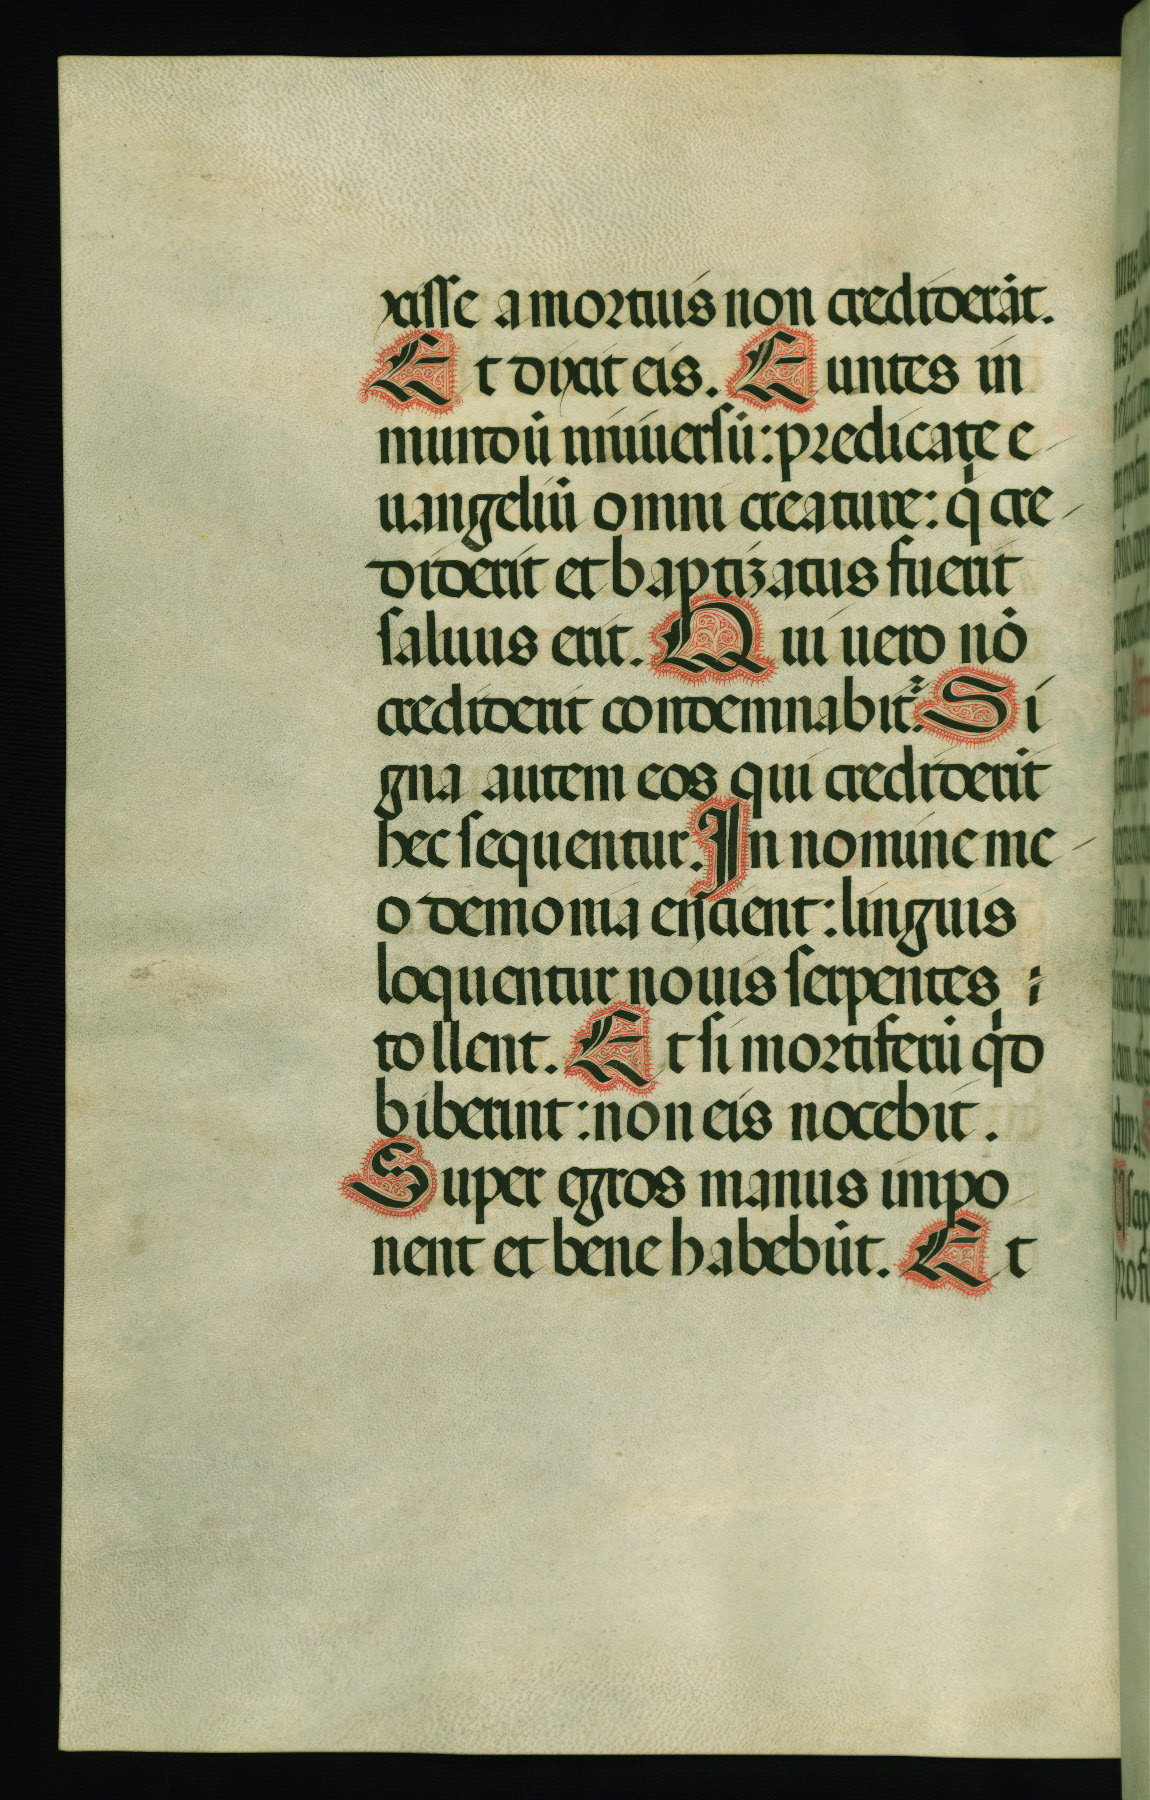 xisse a mortuis non crediderāt.
Et dixit eis. Euntes in
mundū uniuersū: predicate e
uangeliū omni creature: q̇ cre
diderit et baptizatus fuerit
saluus erit. Qui uero nō
crediderit condemnabit᷑. Si
gna autem eos qui crediderīt
hec sequentur. In nomine me
o demonia eijcient: linguis
loquentur nouis serpentes
tollent. Et si mortiferū q̇d
biberint: non eis nocebit.
Super egros manus impo
nent et bene habebūt. Et